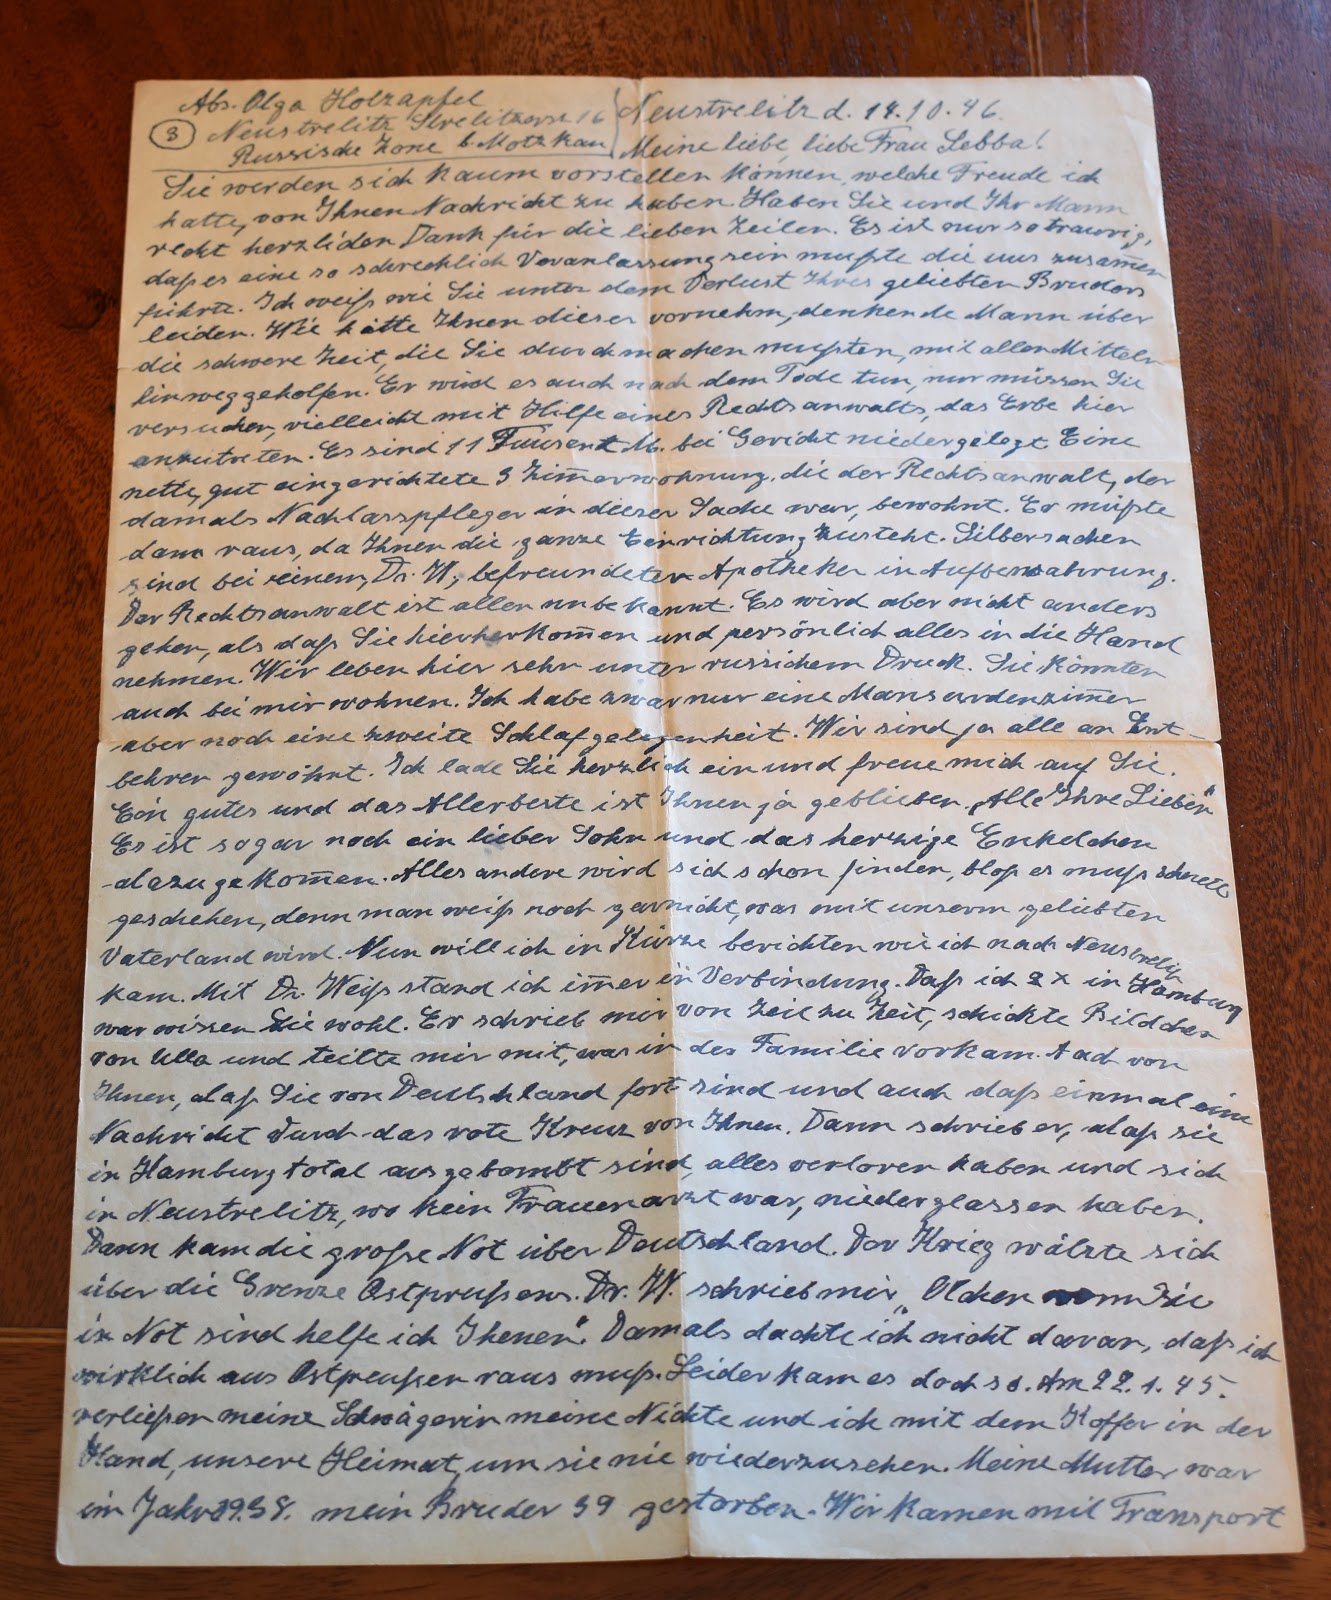 Abs. Olga Holzapfel
Neustrelitz Strelitzerstr 16
③ Russische Zone b. Motzkau
Neustrelitz d. 14.10.46.
Meine liebe, liebe Frau Sebba!
Sie werden sich kaum vorstellen können, welche Freude ich
hatte, von Ihnen Nachricht zu haben. Haben Sie und Ihr Mann
recht herzlichen Dank für die lieben Zeilen. Es ist nur so traurig,
daß es eine so schrecklich Veranlassung sein mußte die uns zusam̅en
führte. Ich weiß wie Sie unter dem Verlust Ihres geliebten Bruders
leiden. Wie hätte Ihnen dieser vornehm, denkende Mann über
die schwere Zeit, die Sie durchmachen mußten, mit allen Mitteln
hinweggeholfen. Er wird es auch nach dem Tode tun, nur müssen Sie
versuchen, vielleicht mit Hilfe eines Rechtsanwalts, das Erbe hier
anzutreten. Es sind 11 Tausent M. bei Gericht niedergelegt. Eine
nette, gut eingerichtete 3 Zim̅erwohnung, die der Rechtsanwalt, der
damals Nachlasspfleger in dieser Sache war, bewohnt. Er müßte
dann raus, da Ihnen die ganze Einrichtung zusteht. Silbersachen
sind bei einem, Dr. W, befreundeten Apotheker in Aufbewahrung.
Der Rechtsanwalt ist allen unbekannt. Es wird aber nicht anders
gehen, als daß Sie hierherkom̅en und persönlich alles in die Hand
nehmen. Wir leben hier sehr unter russichem Druck. Sie könnten
auch bei mir wohnen. Ich habe zwar nur eine Mansardenzim̅er
aber noch eine zweite Schlafgelegenheit. Wir sind ja alle an Ent-
behren gewöhnt. Ich lade Sie herzlich ein und freue mich auf Sie.
Ein gutes und das Allerbeste ist Ihnen ja geblieben. „Alle Ihre Lieben"
Es ist sogar noch ein lieber Sohn und das herzige Enkelchen
dazugekom̅en. Alles andere wird sich schon finden, bloß es muß schnell
geschehen, denn man weiß noch garnicht, was mit unserm geliebten
Vaterland wird. Nun will ich in Kürze berichten wie ich nach Neustrelitz
kam. Mit Dr. Weiß stand ich im̅er in Verbindung. Daß ich 2 x in Hamburg
war wissen Sie wohl. Er schrieb mir von Zeit zu Zeit, schickte Bildchen
von Ulla und teilte mir mit, was in der Familie vorkam. Auch von
Ihnen, daß Sie von Deutschland fort sind und auch daß einmal eine
Nachricht durch das rote Kreuz von Ihnen. Dann schrieb er, daß sie
in Hamburg total ausgebombt sind, alles verloren haben und sich
in Neustrelitz, wo kein Frauenarzt war, niederglassen haben.
Dann kam die große Not über Deutschland. Der Krieg wälzte sich
über die Grenze Ostpreußens. Dr. W. schrieb mir „Olchen wenn Sie
in Not sind helfe ich Ihenen". Damals dachte ich nicht daran, daß ich
wirklich aus Ostpreußen raus muß. Leider kam es doch so. Am 22.1.45.
verließen meine Schwägerin meine Nichte und ich mit dem Koffer in der
Hand, unsere Heimat, um sie nie wiederzusehen. Meine Mutter war
im Jahre 1938. mein Bruder 39 gestorben. Wir kamen mit Transport